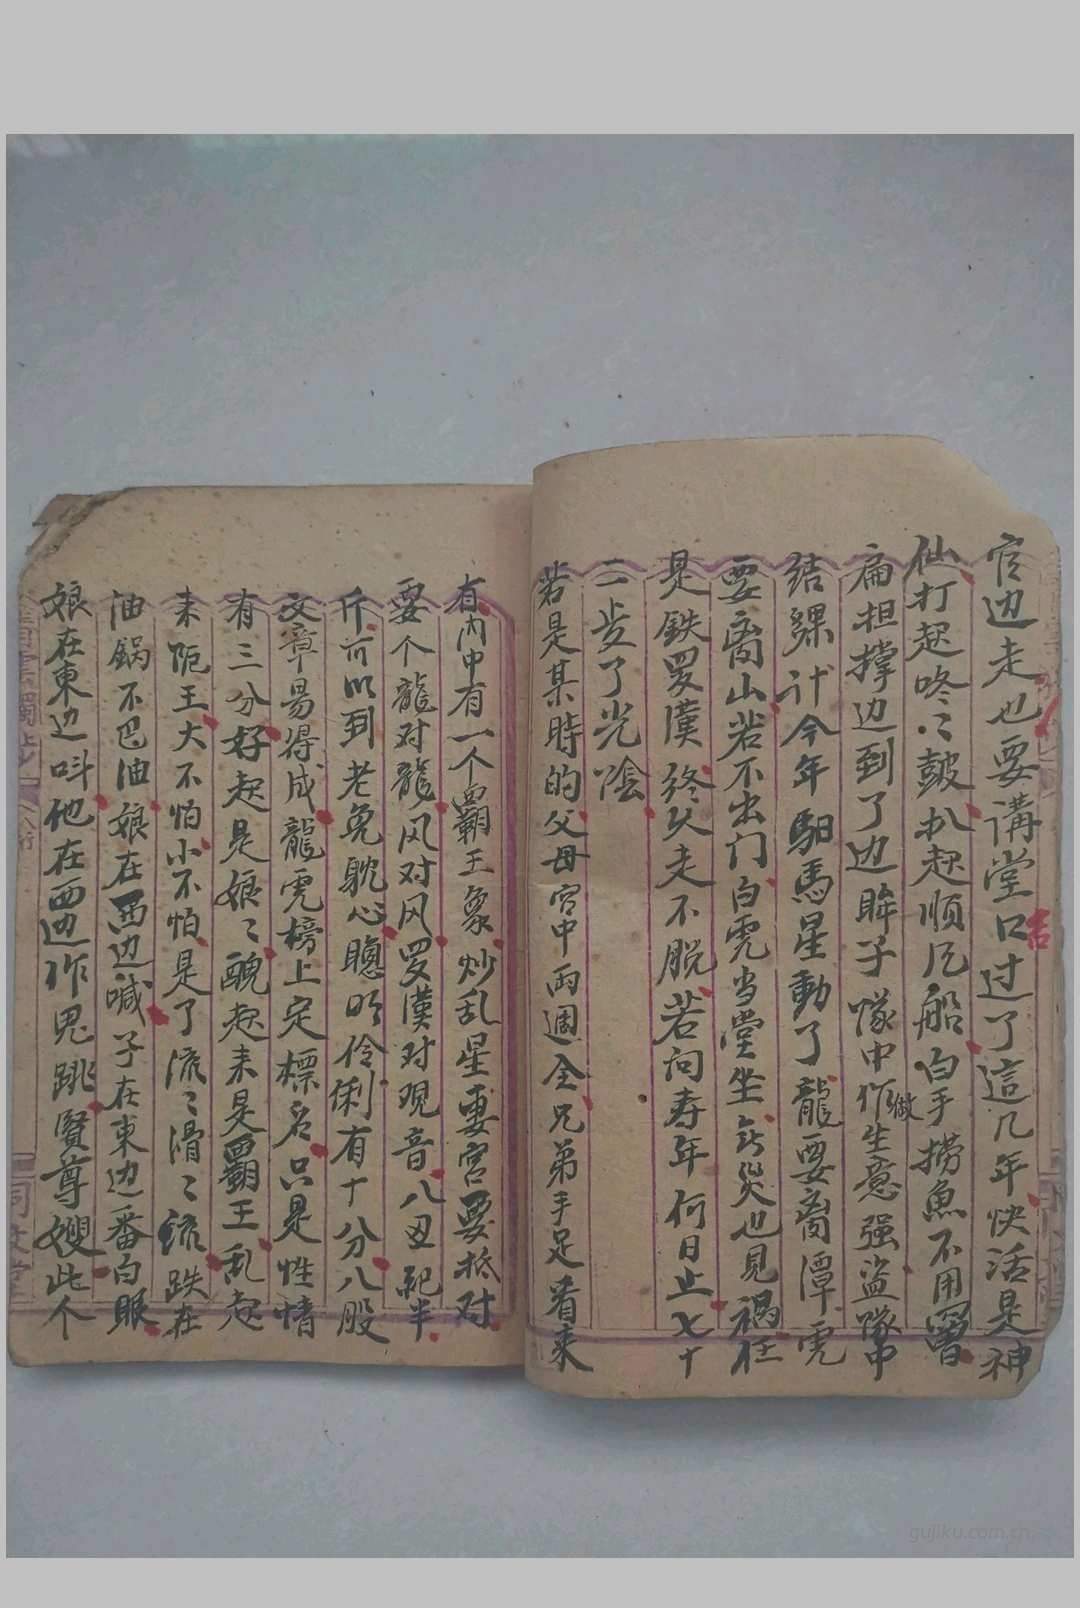 官边走也要講堂口过了這几年快活是神
仙打起咚〻鼓扒起順风船白手捞魚不用罾
扁担撑边到了边眸子隊中作做生意强盜隊中
结髁计今年馹馬星動了龍要离潭虎
要离山若不出门白虎当堂坐災也見禍在
是鉄罗漢終久走不脱若问寿年何日止七十
二步了光陰
若是某時的父母宫中雨週全兄弟手足看来
有内中有一个霸王象炒乱星妻宫要抵对
要个龍对龍风对风罗漢对观音八丑配半
斤所以到老免躭心聰明伶俐有十分八股
文章易得成龍虎榜上定標名只是性情
有三分好起是娘〻醜起来是霸王乱起
来阨王大不怕小不怕是了流〻滑〻流跌在
油锅不巴油娘在西边喊子在東边番白眼
娘在東边呌他在西边作鬼跳賢尊嫂此个
吉
同文堂
gujiku.com.cn